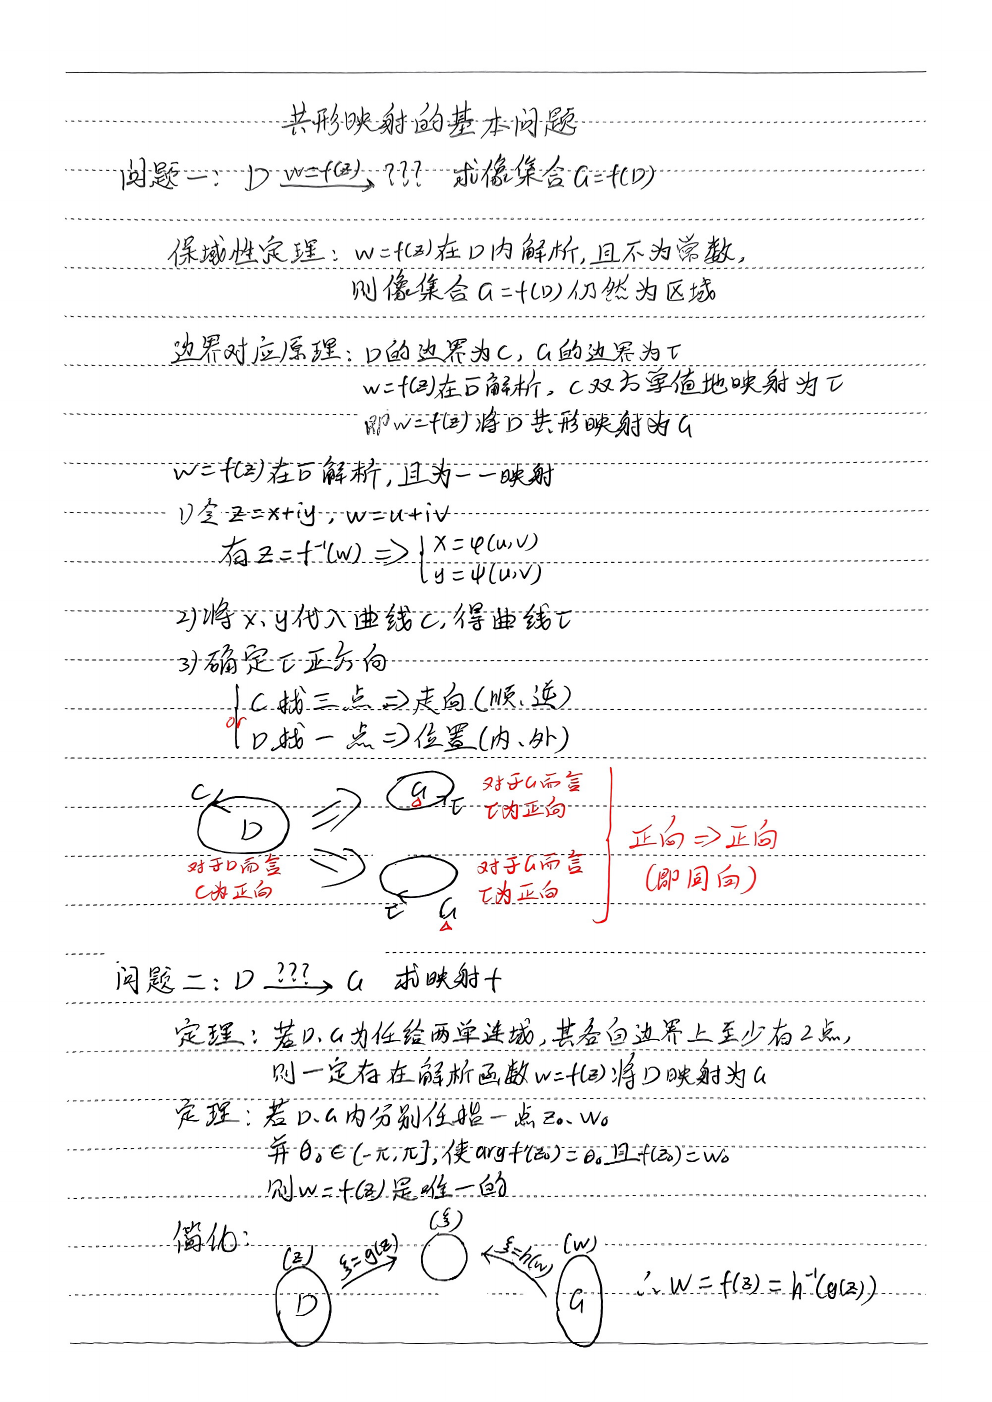 共形映射的基本问题
问题一: D w=f(z) → ??? 求像集合G=f(D)
保域性定理: w=f(z)在D内解析,且不为常数,
则像集合G=f(D)仍然为区域
边界对应原理: D的边界为C, G的边界为τ
w=f(z)在D̄解析, C双方单值地映射为τ
即w=f(z)将D共形映射为G
w=f(z)在D̄解析,且为一一映射
1)令z=x+iy, w=u+iv
有z=f⁻¹(w) ⇒ { x=φ(u,v)
y=ψ(u,v)
2)将x、y代入曲线C,得曲线τ
3)确定τ正方向
C找三点⇒走向(顺、逆)
or
D找一点⇒位置(内、外)
C D ⇒ G τ 对于G而言
τ为正向
正向⇒正向
(即同向)
对于D而言
C为正向
⇒ τ G 对于G而言
τ为正向
问题二: D ??? → G 求映射f
定理: 若D、G为任给两单连域,其各自边界上至少有2点,
则一定存在解析函数w=f(z)将D映射为G
定理: 若D、G内分别任指一点z₀、w₀
并θ₀∈(-π,π],使argf'(z₀)=θ₀且f(z₀)=w₀
则w=f(z)是唯一的
简化:
(z) D ξ=g(z) (ξ) ξ=h(w) (w) G ∴w=f(z)=h⁻¹(g(z))